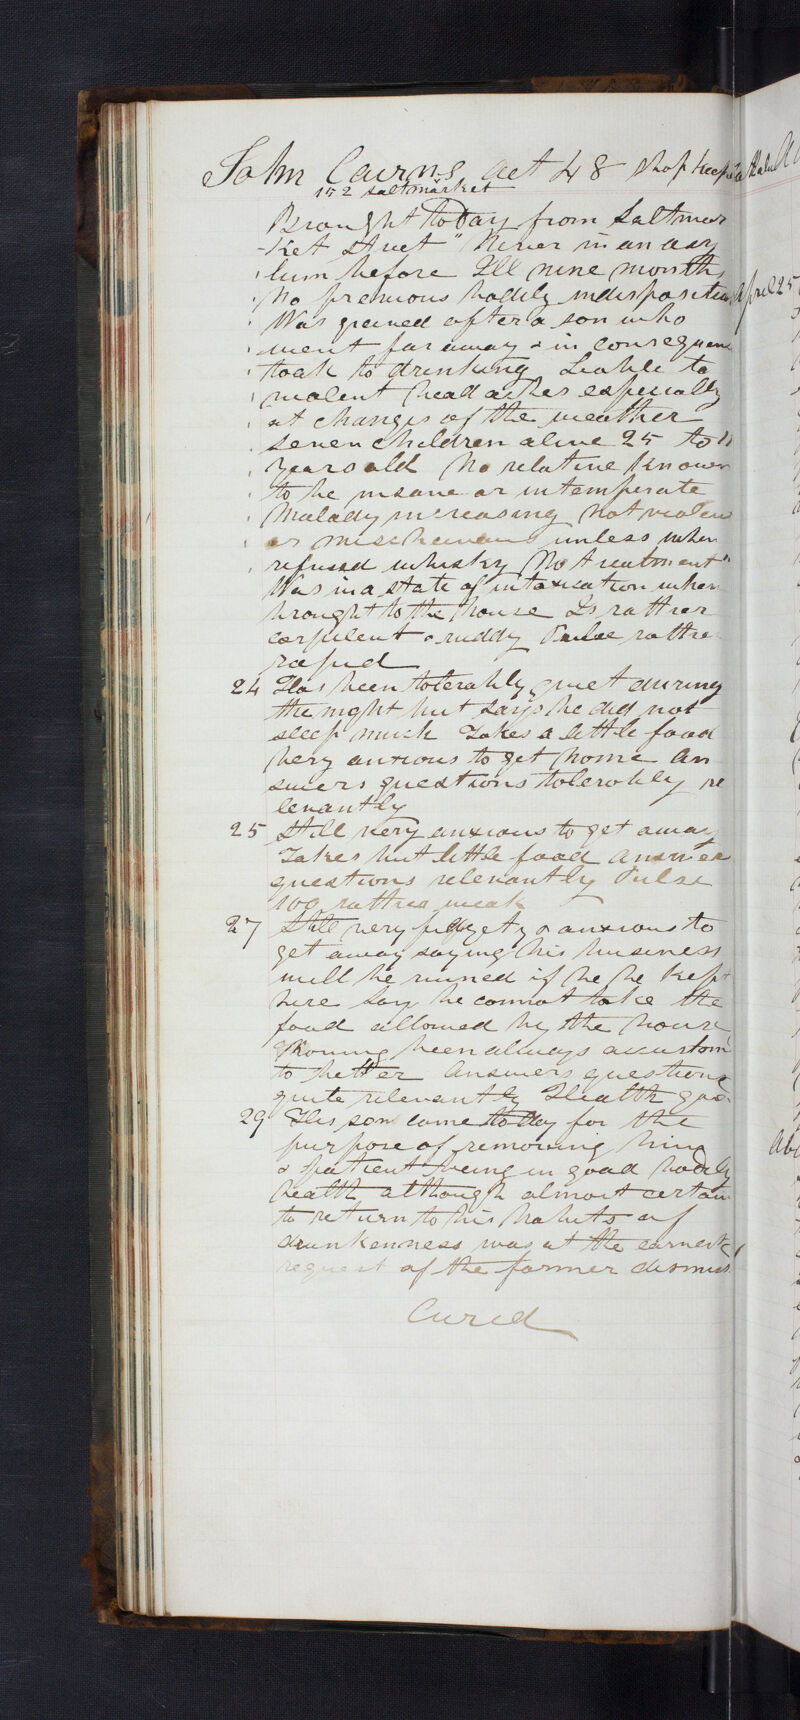 John Cairns aet 48 Shop Keep
152 Saltmarket
Brought to Day from Saltmar
-ket Street " Never in an asy
lum before Ill nine months
No previous bodily indisposition
Was greived after a son who
went far away & in consequence
took to drinking Liable to
violent headaches especially
at changes of the weather
seven children alive 25 to 11
years old No relative known
to be insane or intemperate
Malady increasing not violent
or mischievous unless when
refused whisky No treatment"
Was in a state of intoxication when
brought to the house Is rather
corpulent & ruddy Pulse rather
rapid
24 Has been tolerably quiet during
the night but says he did not
sleep much Takes a little food
very anxious to get home An
swers questions tolerably re
levantly
25 Still very anxious to get away
Takes but little food Answers
questions relevantly Pulse
100 rather weak
27 Still very fidgety & anxious to
get away saying his business
will be ruined if he be kept
here Say he cannot take the
food allowed by the house
Having been always accustom
to better Answers questions
quite relevantly Health good
29 His son came to day for the
purpose of removing him
& patient being in good bodily
health although almost certain
to return to his habits of
drunkenness was at the earnest
request of the former dismiss
Cured
April 25